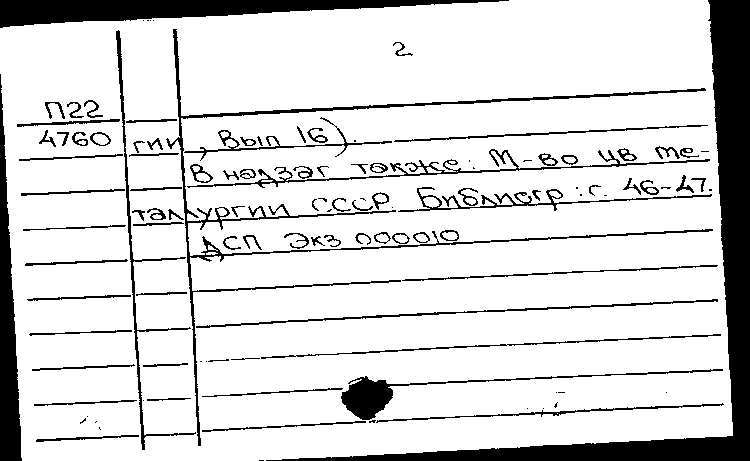 2
П22
4760 гии, Вып 16).
В надзаг также: М-во цв ме-
таллургии СССР. Библиогр: с. 46-47.
ДСП Экз 000010